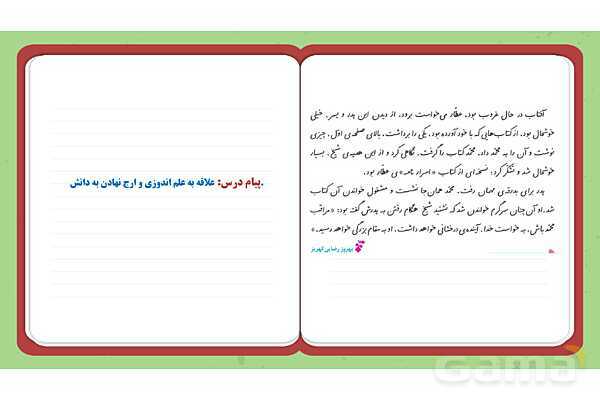 آفتاب در حال غروب بود. عطّار می‌خواست برود. از دیدن این پدر و پسر، خیلی
خوشحال بود. از کتاب‌هایی که با خود آورده بود، یکی را برداشت. بالای صفحه‌ی اوّل، چیزی
نوشت و آن را به محمّد داد. محمّد کتاب را گرفت. نگاهی کرد و از این هدیه‌ی شیخ، بسیار
خوشحال شد و تشکّر کرد؛ نسخه‌ای از کتاب «اسرار نامه» ی عطّار بود.
پدر برای بدرقه‌ی مهمان رفت. محمّد همان جا نشست و مشغول خواندن آن کتاب
شد. او آن چنان سرگرم خواندن شد که نشنید شیخ هنگام رفتن به پدرش گفته بود: «مراقب
محمّد باش. به خواست خدا، آینده‌ی درخشانی خواهد داشت. او به مقام بزرگی خواهد رسید.»
بهروز رضایی کهریز
.پیام درس: علاقه به علم اندوزی و ارج نهادن به دانش
Gama